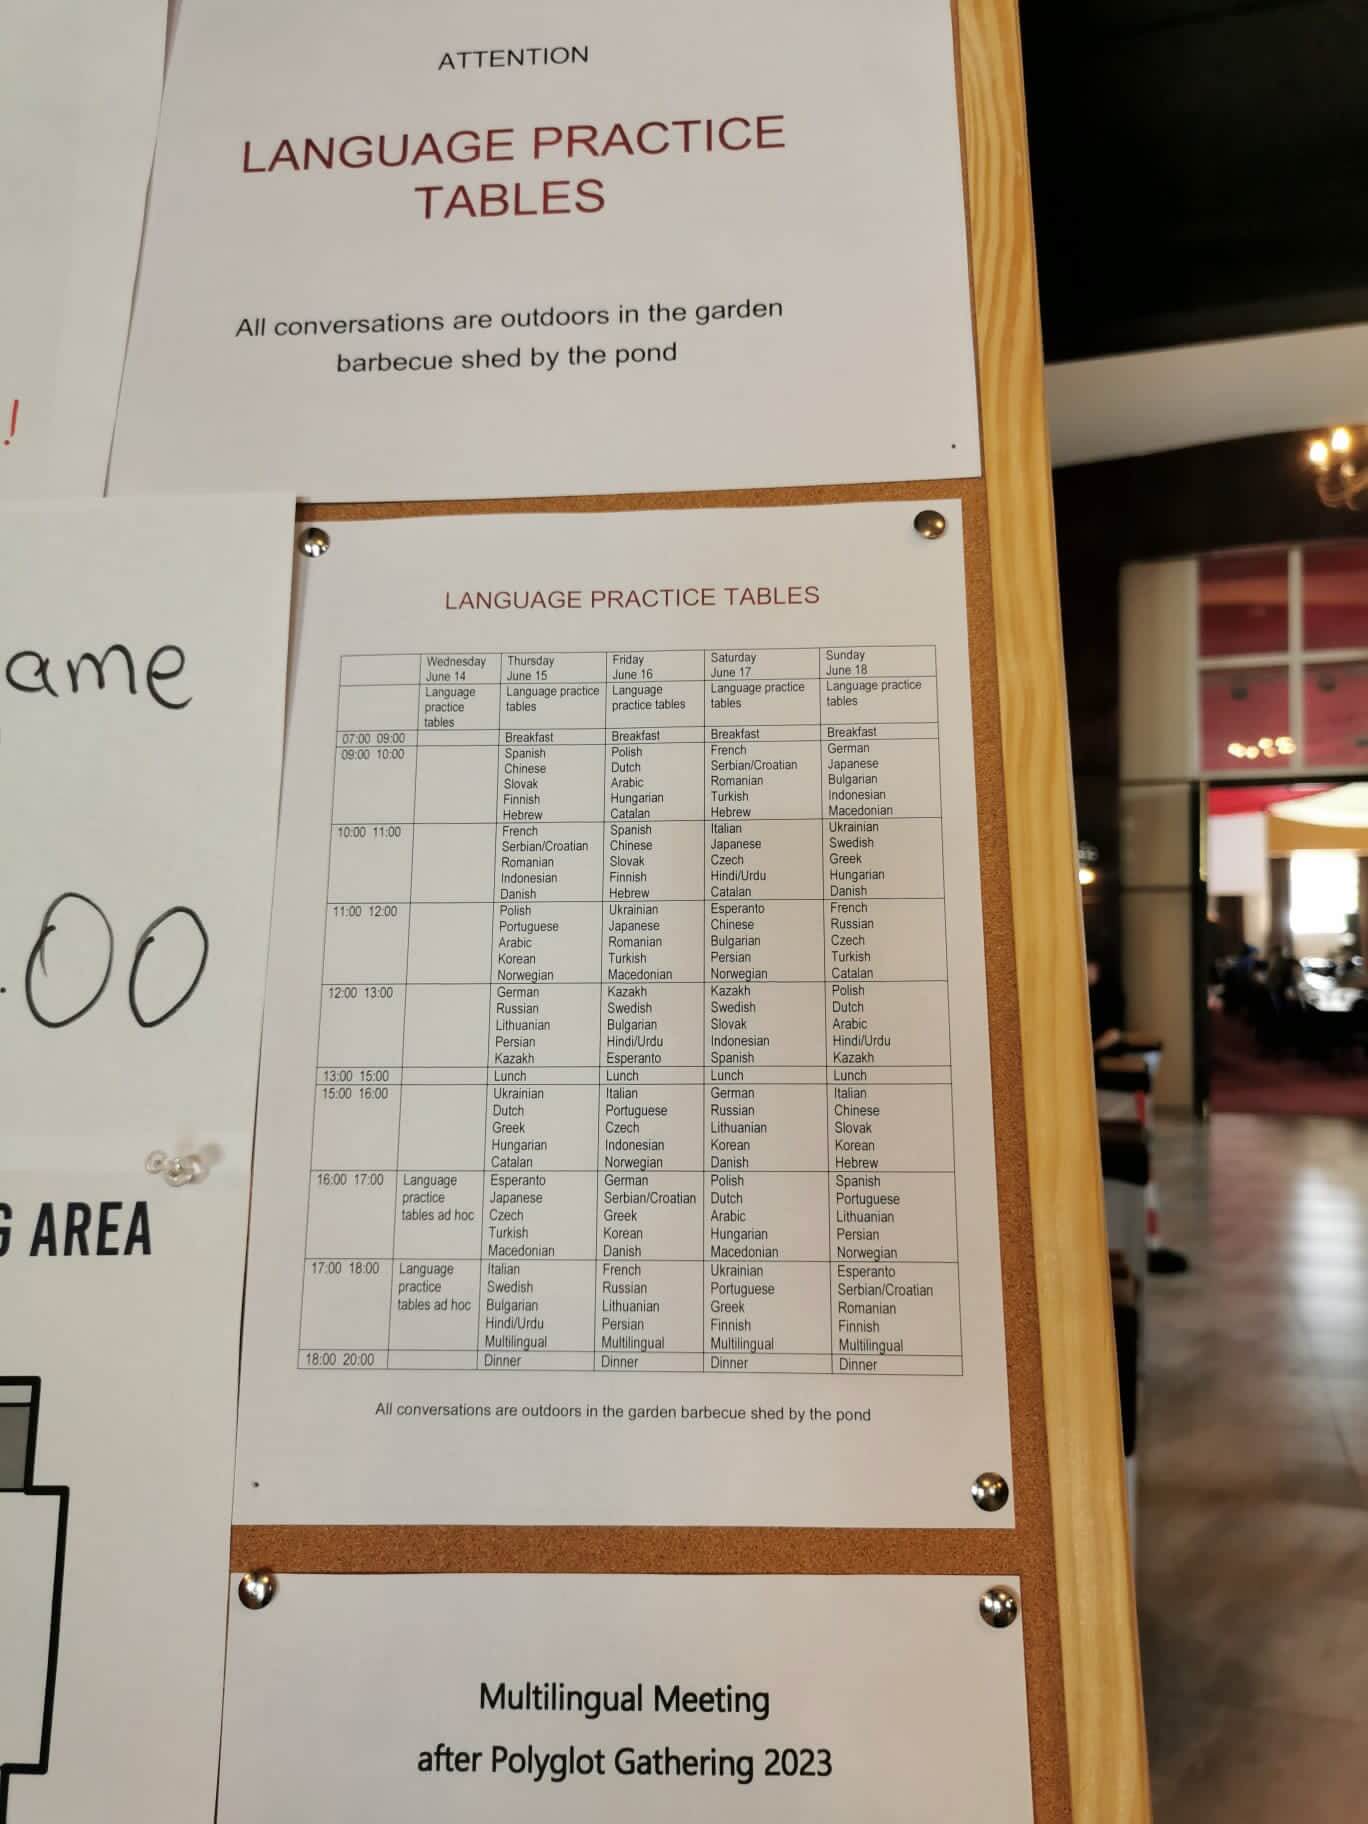 ATTENTION
LANGUAGE PRACTICE
TABLES
All conversations are outdoors in the garden
barbecue shed by the pond
!
ame
.00
G AREA
LANGUAGE PRACTICE TABLES
Wednesday June 14 Thursday June 15 Friday June 16 Saturday June 17 Sunday June 18
Language practice tables Language practice tables Language practice tables Language practice tables Language practice tables
07:00 09:00 Breakfast Breakfast Breakfast Breakfast
09:00 10:00 Spanish Polish French German
Chinese Dutch Serbian/Croatian Japanese
Slovak Arabic Romanian Bulgarian
Finnish Hungarian Turkish Indonesian
Hebrew Catalan Hebrew Macedonian
10:00 11:00 French Spanish Italian Ukrainian
Serbian/Croatian Chinese Japanese Swedish
Romanian Slovak Czech Greek
Indonesian Finnish Hindi/Urdu Hungarian
Danish Hebrew Catalan Danish
11:00 12:00 Polish Ukrainian Esperanto French
Portuguese Japanese Chinese Russian
Arabic Romanian Bulgarian Czech
Korean Turkish Persian Turkish
Norwegian Macedonian Norwegian Catalan
12:00 13:00 German Kazakh Kazakh Polish
Russian Swedish Swedish Dutch
Lithuanian Bulgarian Slovak Arabic
Persian Hindi/Urdu Indonesian Hindi/Urdu
Kazakh Esperanto Spanish Kazakh
13:00 15:00 Lunch Lunch Lunch Lunch
15:00 16:00 Ukrainian Italian German Italian
Dutch Portuguese Russian Chinese
Greek Czech Lithuanian Slovak
Hungarian Indonesian Korean Korean
Catalan Norwegian Danish Hebrew
16:00 17:00 Language Esperanto German Polish Spanish
practice Japanese Serbian/Croatian Dutch Portuguese
tables ad hoc Czech Greek Arabic Lithuanian
Turkish Korean Hungarian Persian
Macedonian Danish Macedonian Norwegian
17:00 18:00 Language Italian French Ukrainian Esperanto
practice Swedish Russian Portuguese Serbian/Croatian
tables ad hoc Bulgarian Lithuanian Greek Romanian
Hindi/Urdu Persian Finnish Finnish
Multilingual Multilingual Multilingual Multilingual
18:00 20:00 Dinner Dinner Dinner Dinner
All conversations are outdoors in the garden barbecue shed by the pond
Multilingual Meeting
after Polyglot Gathering 2023